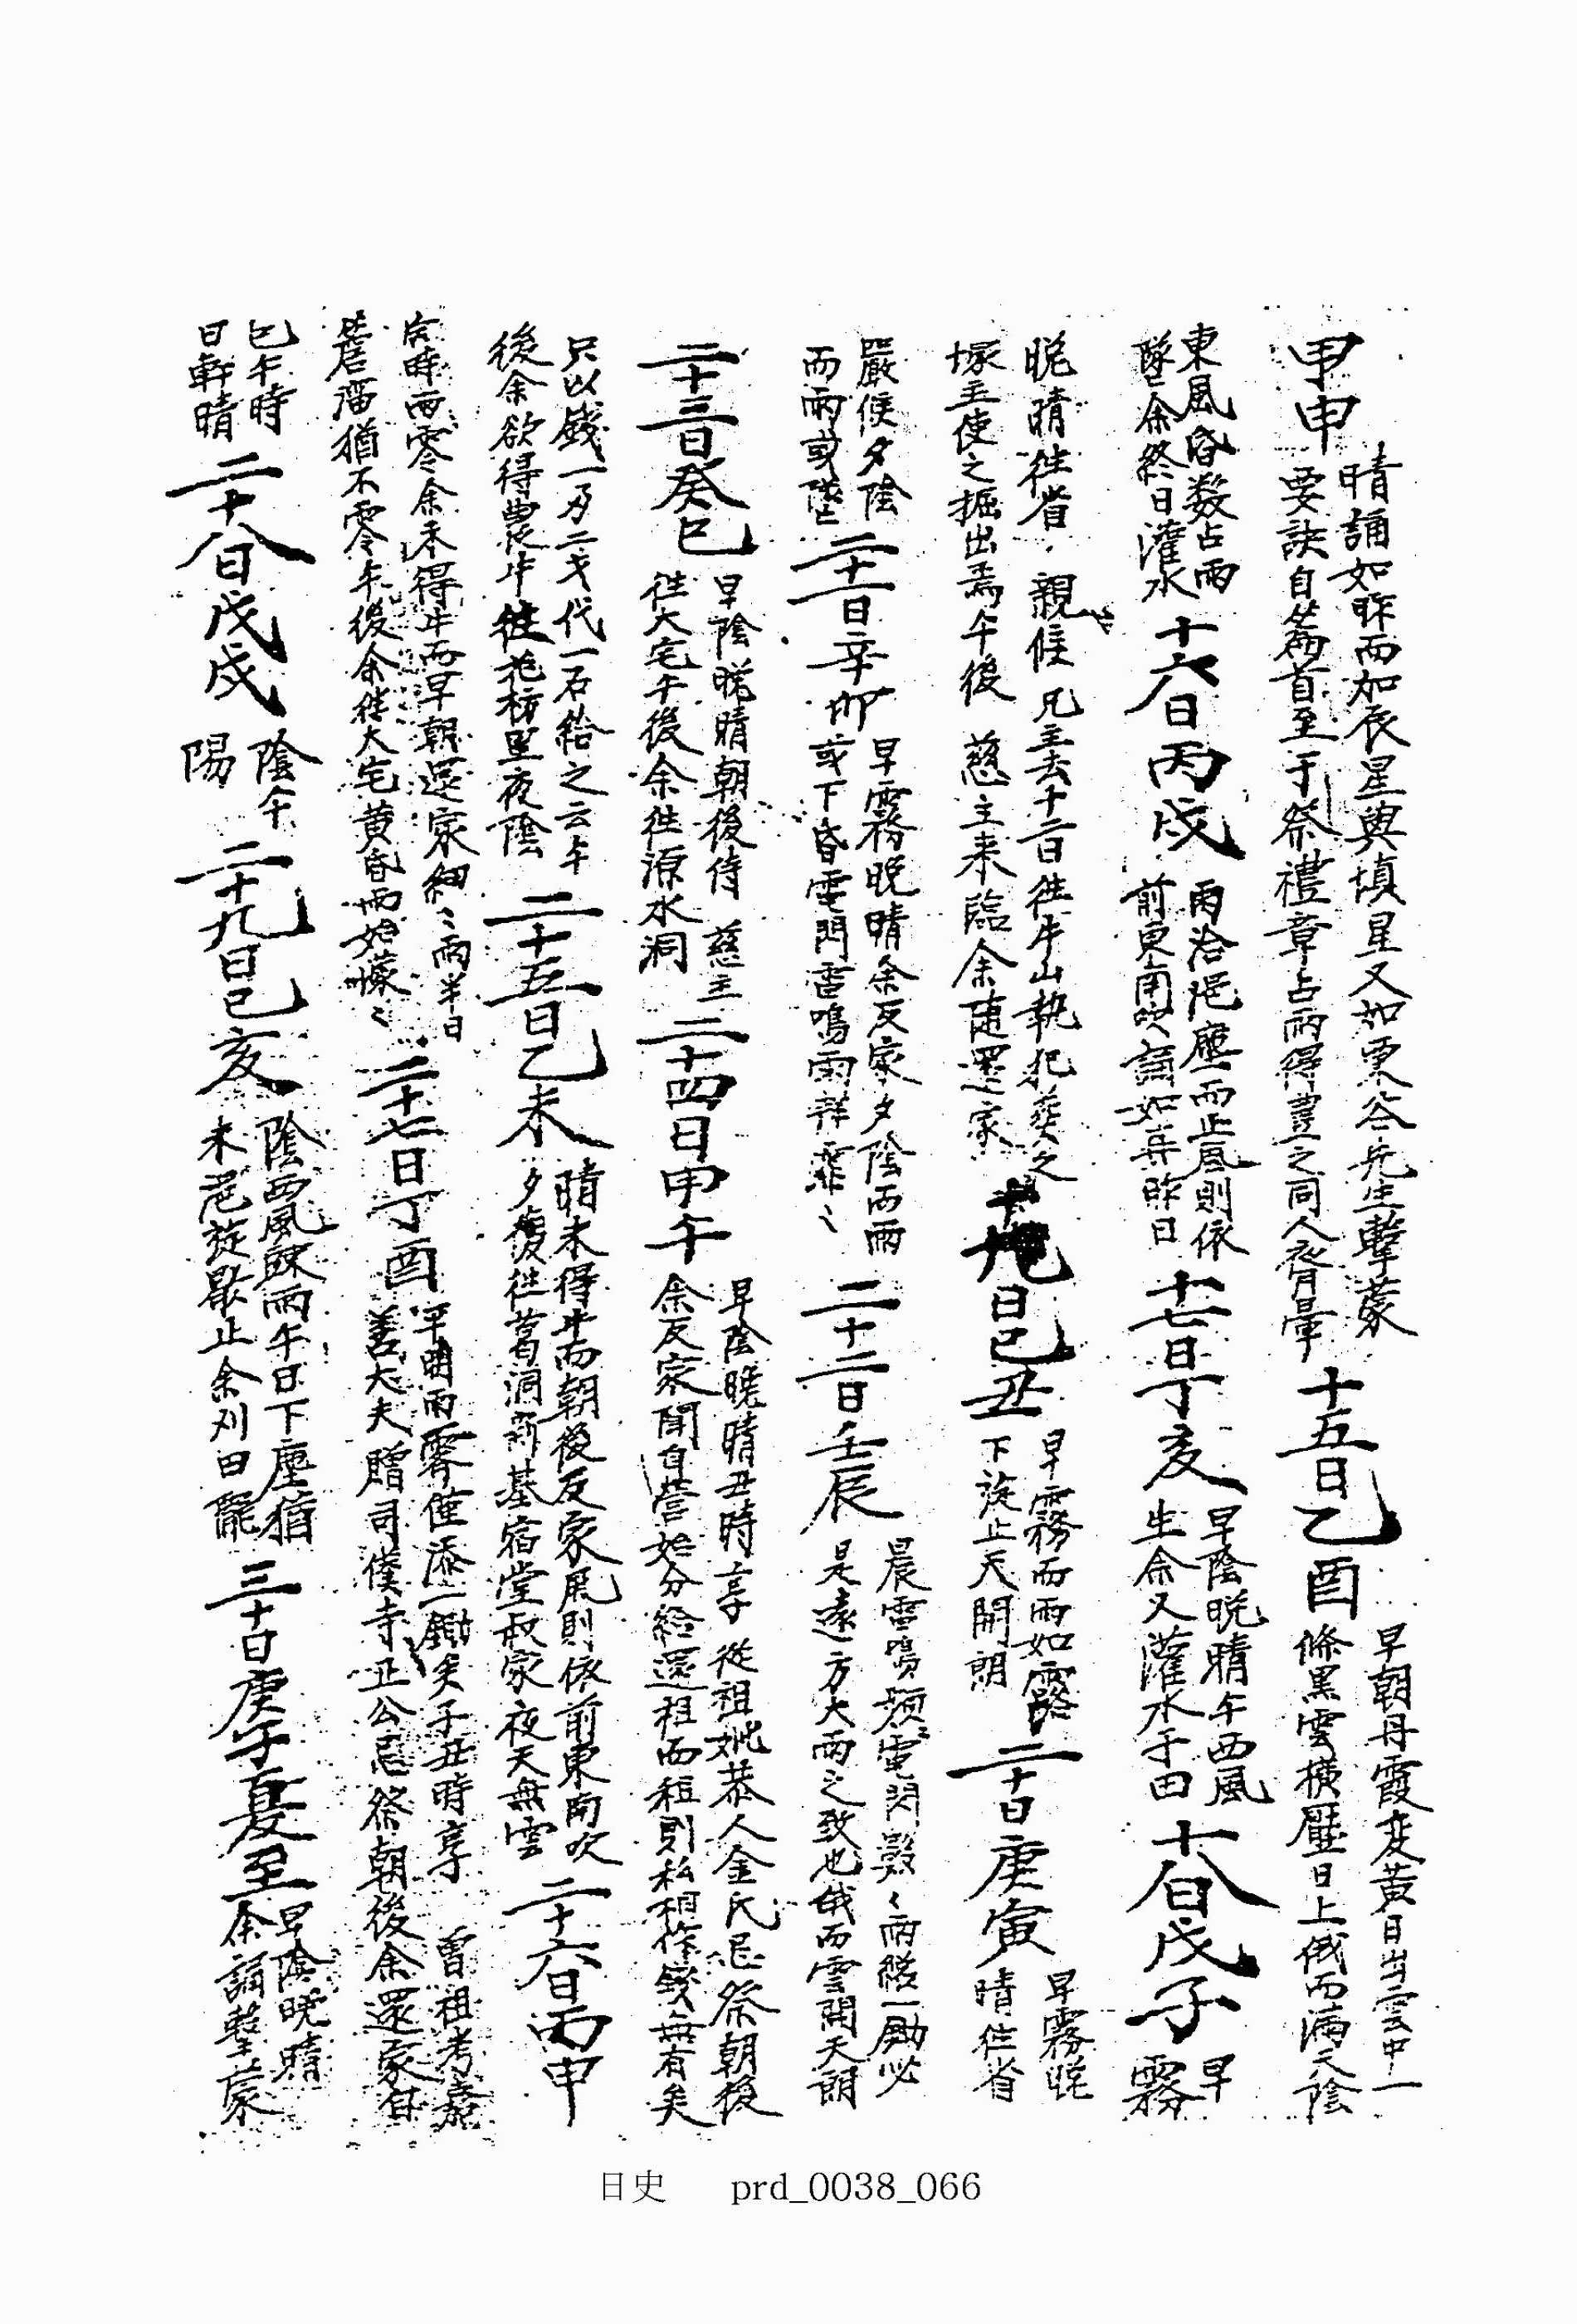 甲申
晴誦如昨而加辰星與塡星又如栗谷先生擊蒙
要訣自篇首至于祭禮章占雨得豊之同人脊暈
十五日乙酉
早朝丹霞变黃日出雲中一
條黑雲橫壓日上俄而滿天陰
東風昏数占雨
墜余終日灌水
十六日丙戌
雨浥塵而止風則依
前東南吹誦如再昨日
十七日丁亥
早陰晩晴午西風
生余又灌水于田
十八日戊子
早
霧
晩晴往省 親候 兄主去十二日往牛山執犯葬之
塚主使之掘出焉午後 慈主来臨余陪還家
十九日己丑
早霧而雨如露
下旋止天開朗
二十日庚寅
早霧晩
晴往省
嚴候夕陰
而雨或墜
二十一日辛卯
早霧晩晴余反家夕陰而雨
或下昏電閃雷鳴雨霏々
二十二日壬辰
晨雷鳴頻電閃數々雨終一鋤必
是遠方大雨之致也俄而雲開天朗
二十三日癸巳
早陰晩晴朝後侍 慈主
往大宅午後余往源水洞
二十四日甲午
早陰晩晴丑時享 從祖妣恭人金氏忌祭朝後
余反家聞自營始分給還租而租則私相作錢無有矣
只以錢一刄二戈代一石給之云午
後余欲得農牛往花枋里夜陰
二十五日乙未
晴未得牛而朝後反家風則依前東南吹
夕復往葛洞新基宿堂叔家夜天無雲
二十六日丙申
寅時雨零余未得牛而早朝還家細々雨半日
簷溜猶不零午後余往大宅黃昏雨始濛々
二十七日丁酉
平明雨霽僅添一鋤矣子丑時享 曾祖考嘉
善大夫 贈司僕寺正公忌祭朝後余還家自
巳午時
日軒晴
二十八日戊戌
陰午
陽
二十九日己亥
陰西風踈雨午日下塵猶
未浥旋歇止余刈田罷
三十日庚子夏至
早陰晩晴
余誦擊蒙
日史 prd_0038_066